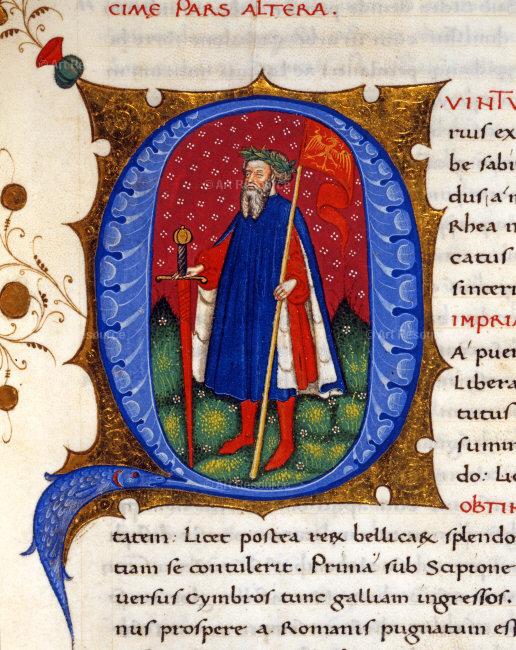 CIME PARS ALTERA.
.VINTV
rius ex
be sabi
dus; a' n
Rhea n
catus
sincer
IMPRIA
A' puer
Libera
tutus
summ
do: Lic
OBTIN
tatem: Licet postea rerꝫ bellicarꝫ splendo
tiam se contulerit. Prima' sub Scipione
versus Cymbros tunc galliam ingressos.
nus prospere a. Romanis pugnatum ess